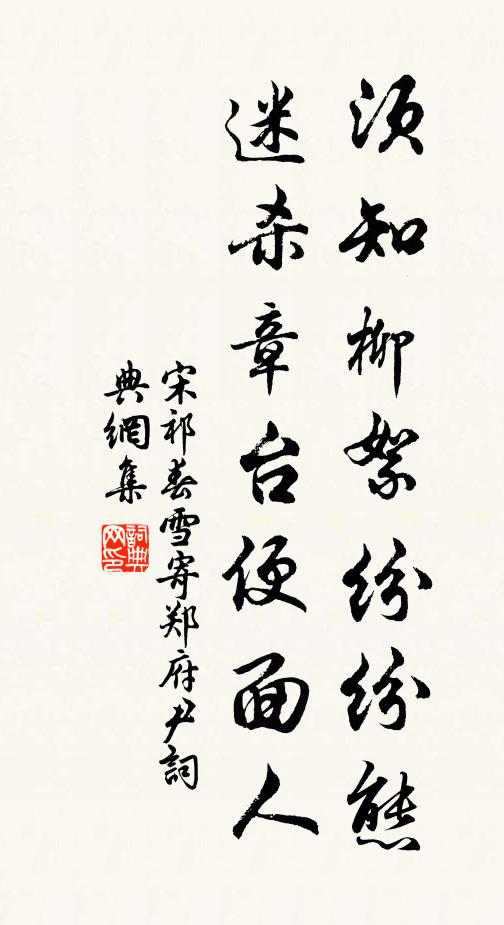 须知柳絮纷纷态
迷杀章台便面人
宋祁春雪寄郑府尹詞
典網集
詞典网印